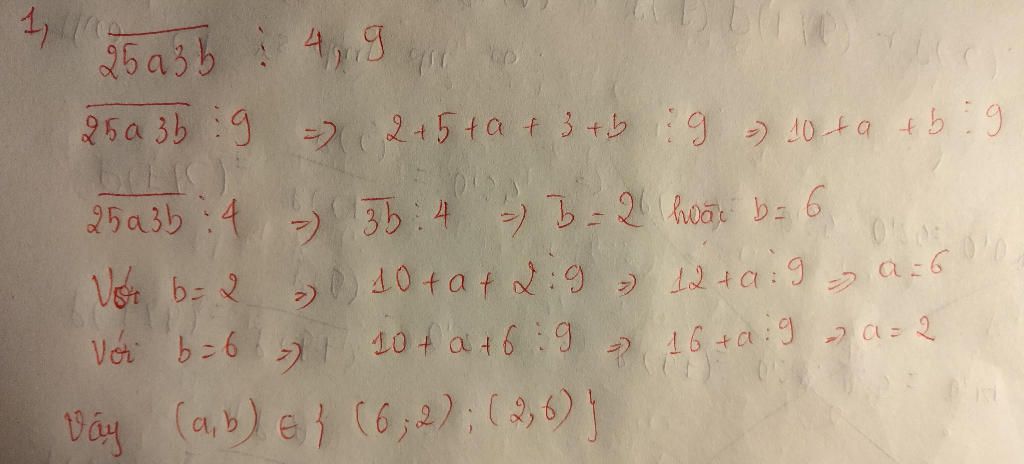 1, 25a3b ⋮ 4, 9
25a3b ⋮ 9 => 2+5+a+3+b ⋮ 9 => 10+a+b ⋮ 9
25a3b ⋮ 4 => 3b ⋮ 4 => b = 2 hoặc b = 6
Với b = 2 => 10+a+2 ⋮ 9 => 12+a ⋮ 9 => a = 6
Với b = 6 => 10+a+6 ⋮ 9 => 16+a ⋮ 9 => a = 2
Vậy (a,b) ∈ { (6;2) ; (2,6) }